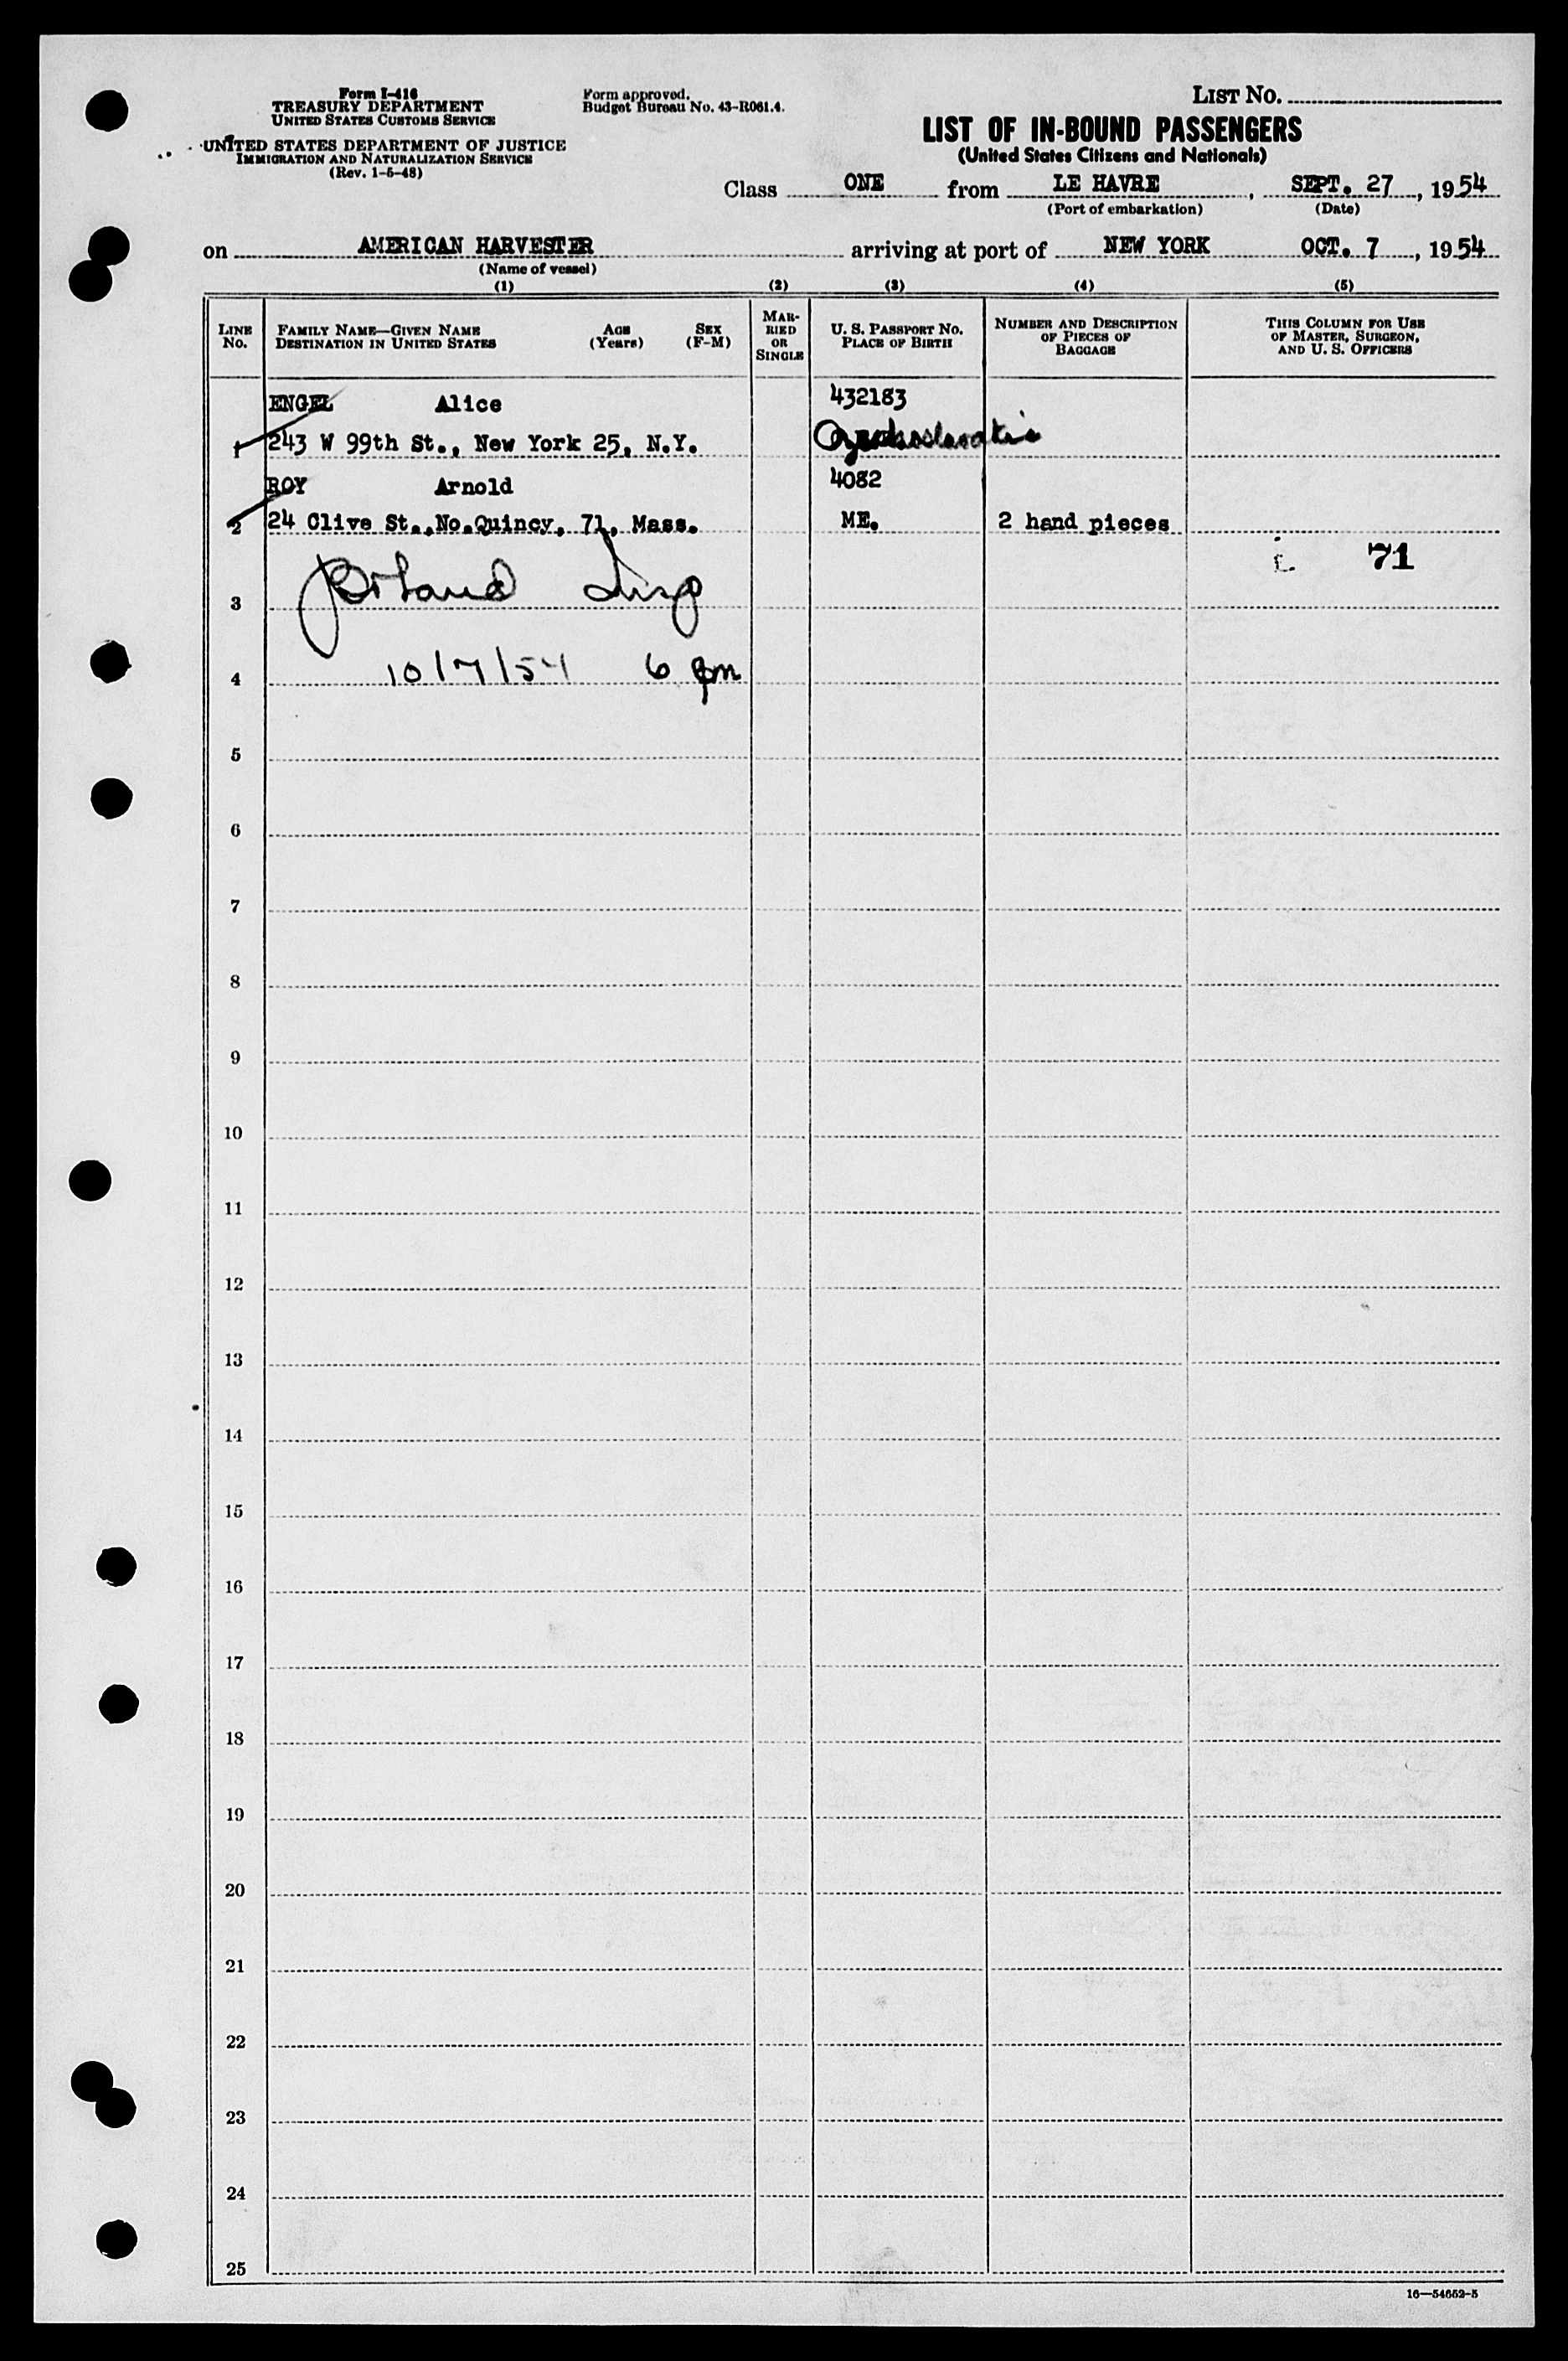 Form I-416
TREASURY DEPARTMENT
UNITED STATES CUSTOMS SERVICE
UNITED STATES DEPARTMENT OF JUSTICE
IMMIGRATION AND NATURALIZATION SERVICE
(Rev. 1-5-48)
Form approved.
Budget Bureau No. 43-R061.4.
LIST NO.
LIST OF IN-BOUND PASSENGERS
(United States Citizens and Nationals)
Class ONE from LE HAVRE, SEPT. 27, 1954
(Port of embarkation) (Date)
on AMERICAN HARVESTER arriving at port of NEW YORK OCT. 7, 1954
(Name of vessel)
(1) (2) (3) (4) (5)
LINE NO.
FAMILY NAME—GIVEN NAME AGE (Years) SEX (F-M)
DESTINATION IN UNITED STATES
MARRIED OR SINGLE
U. S. PASSPORT NO.
PLACE OF BIRTH
NUMBER AND DESCRIPTION OF PIECES OF BAGGAGE
THIS COLUMN FOR USE OF MASTER, SURGEON, AND U. S. OFFICERS
ENGEL Alice 432183
1 243 W 99th St., New York 25, N.Y. Czechoslovakia
ROY Arnold 4082
2 24 Clive St.,No.Quincy, 71, Mass. ME. 2 hand pieces
71
3
4 10/7/54 6 pm
5
6
7
8
9
10
11
12
13
14
15
16
17
18
19
20
21
22
23
24
25
16—54652-5